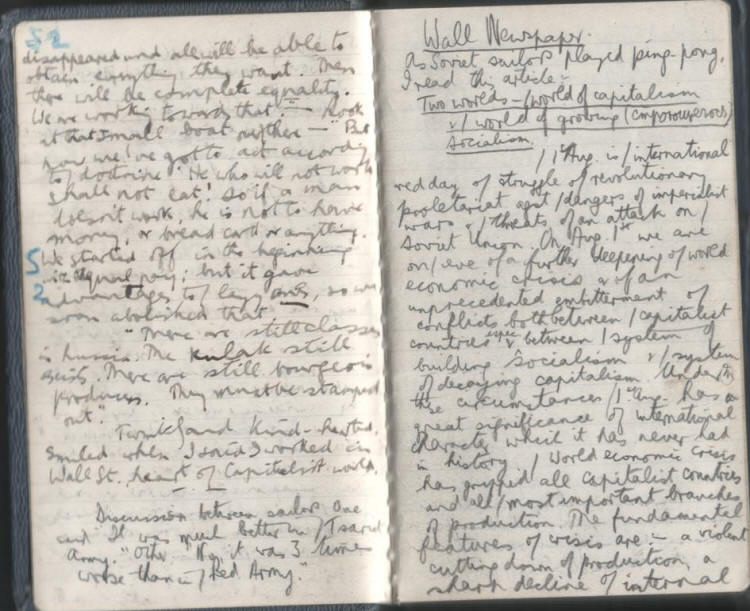 52
disappeared and all will be able to
obtain everything they want. Then
there will be complete equality.
We are working towards that." - "Look
at that small boat over there - "But
now we've got to act according
to / doctrine 'He who will not work
shall not eat.' So if a man
doesn't work, he is not to have
money, or bread card or anything.
We started off in the beginning
with equal pay; but it gave
advantages to / lazy ones, so we
soon abolished that
"There are still classes
in Russia. The kulak still
exists. There are still bourgeois
producers. They must be stamped
out."
and kind-hearted,
smiled when I said I worked in
Wall St. heart of Capitalist world.
Discussion between sailors One
said "It was much better in / Tsarist
Army." Other "No, it was 3 times
worse than in / Red Army."
52
Wall Newspaper.
As Soviet sailors played ping-pong,
I read this article:-
Two worlds - / world of capitalism
& / world of growing
Socialism.
/ 1st Aug. is / international
red day of struggle of revolutionary
proletariat agst / dangers of imperialist
wars & / threats of an attack on /
Soviet Union. On Aug. 1st we are
on / eve of a further deepening of world
economic crisis & of an
unprecedented embitterment of
conflicts both between / capitalist
countries & espec between / system of
building Socialism & / system
of decaying capitalism. Under
these circumstances / 1st Aug. has a
great significance of international
character which it has never had
in history. / World economic crisis
has gripped all Capitalist countries
and all / most important branches
of production. The fundamental
features of crisis are:- a violent
cutting down of production, a
sharp decline of internal